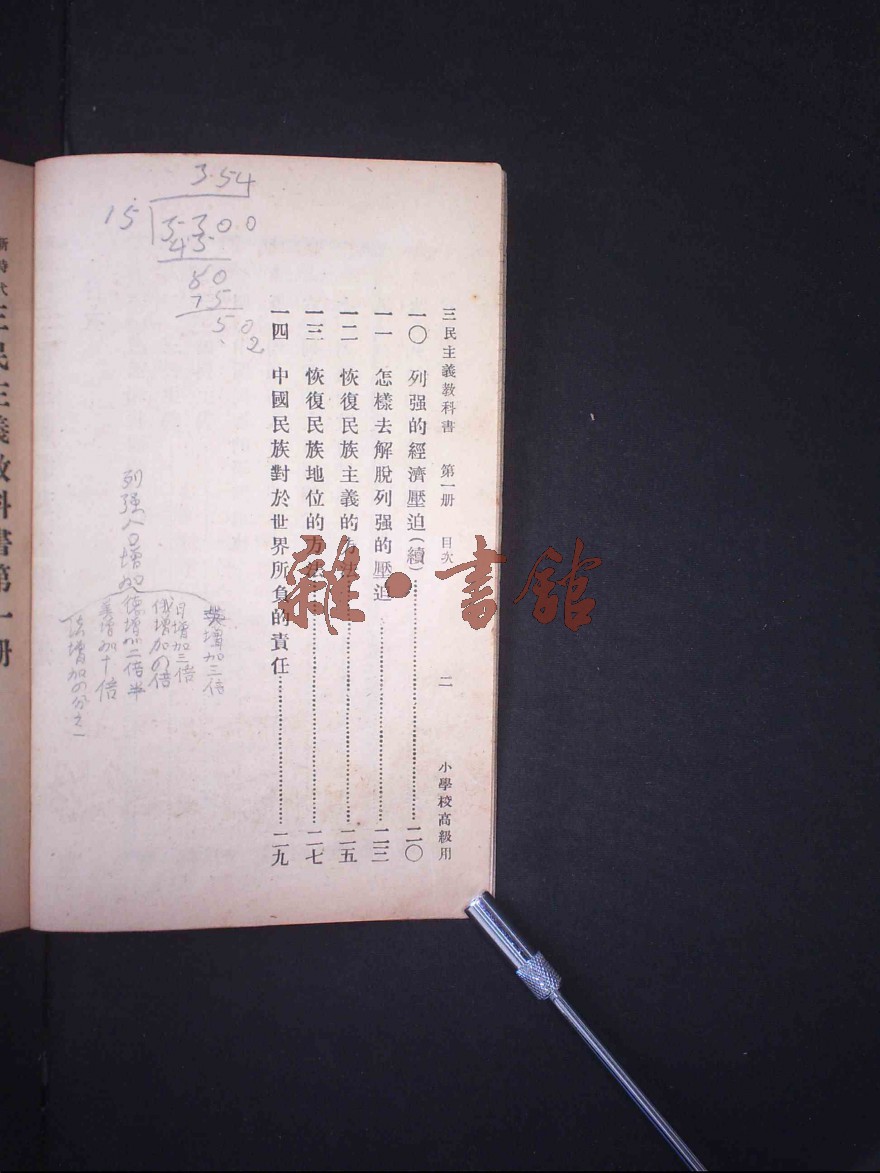 三民主義教科書 第一册 目次 二 小學校高級用
一〇 列强的經濟壓迫(續)……二〇
一一 怎樣去解脫列强的壓迫……二三
一二 恢復民族主義的方法……二五
一三 恢復民族地位的方法……二七
一四 中國民族對於世界所負的責任……二九
3.54
15
5300
45
80
75
50
2
列强人口增加
英增加三倍
日增加三倍
俄增加四倍
德增加二倍半
美增加十倍
法增加四分之一
新時代三民主義教科書第一册
雜·書館